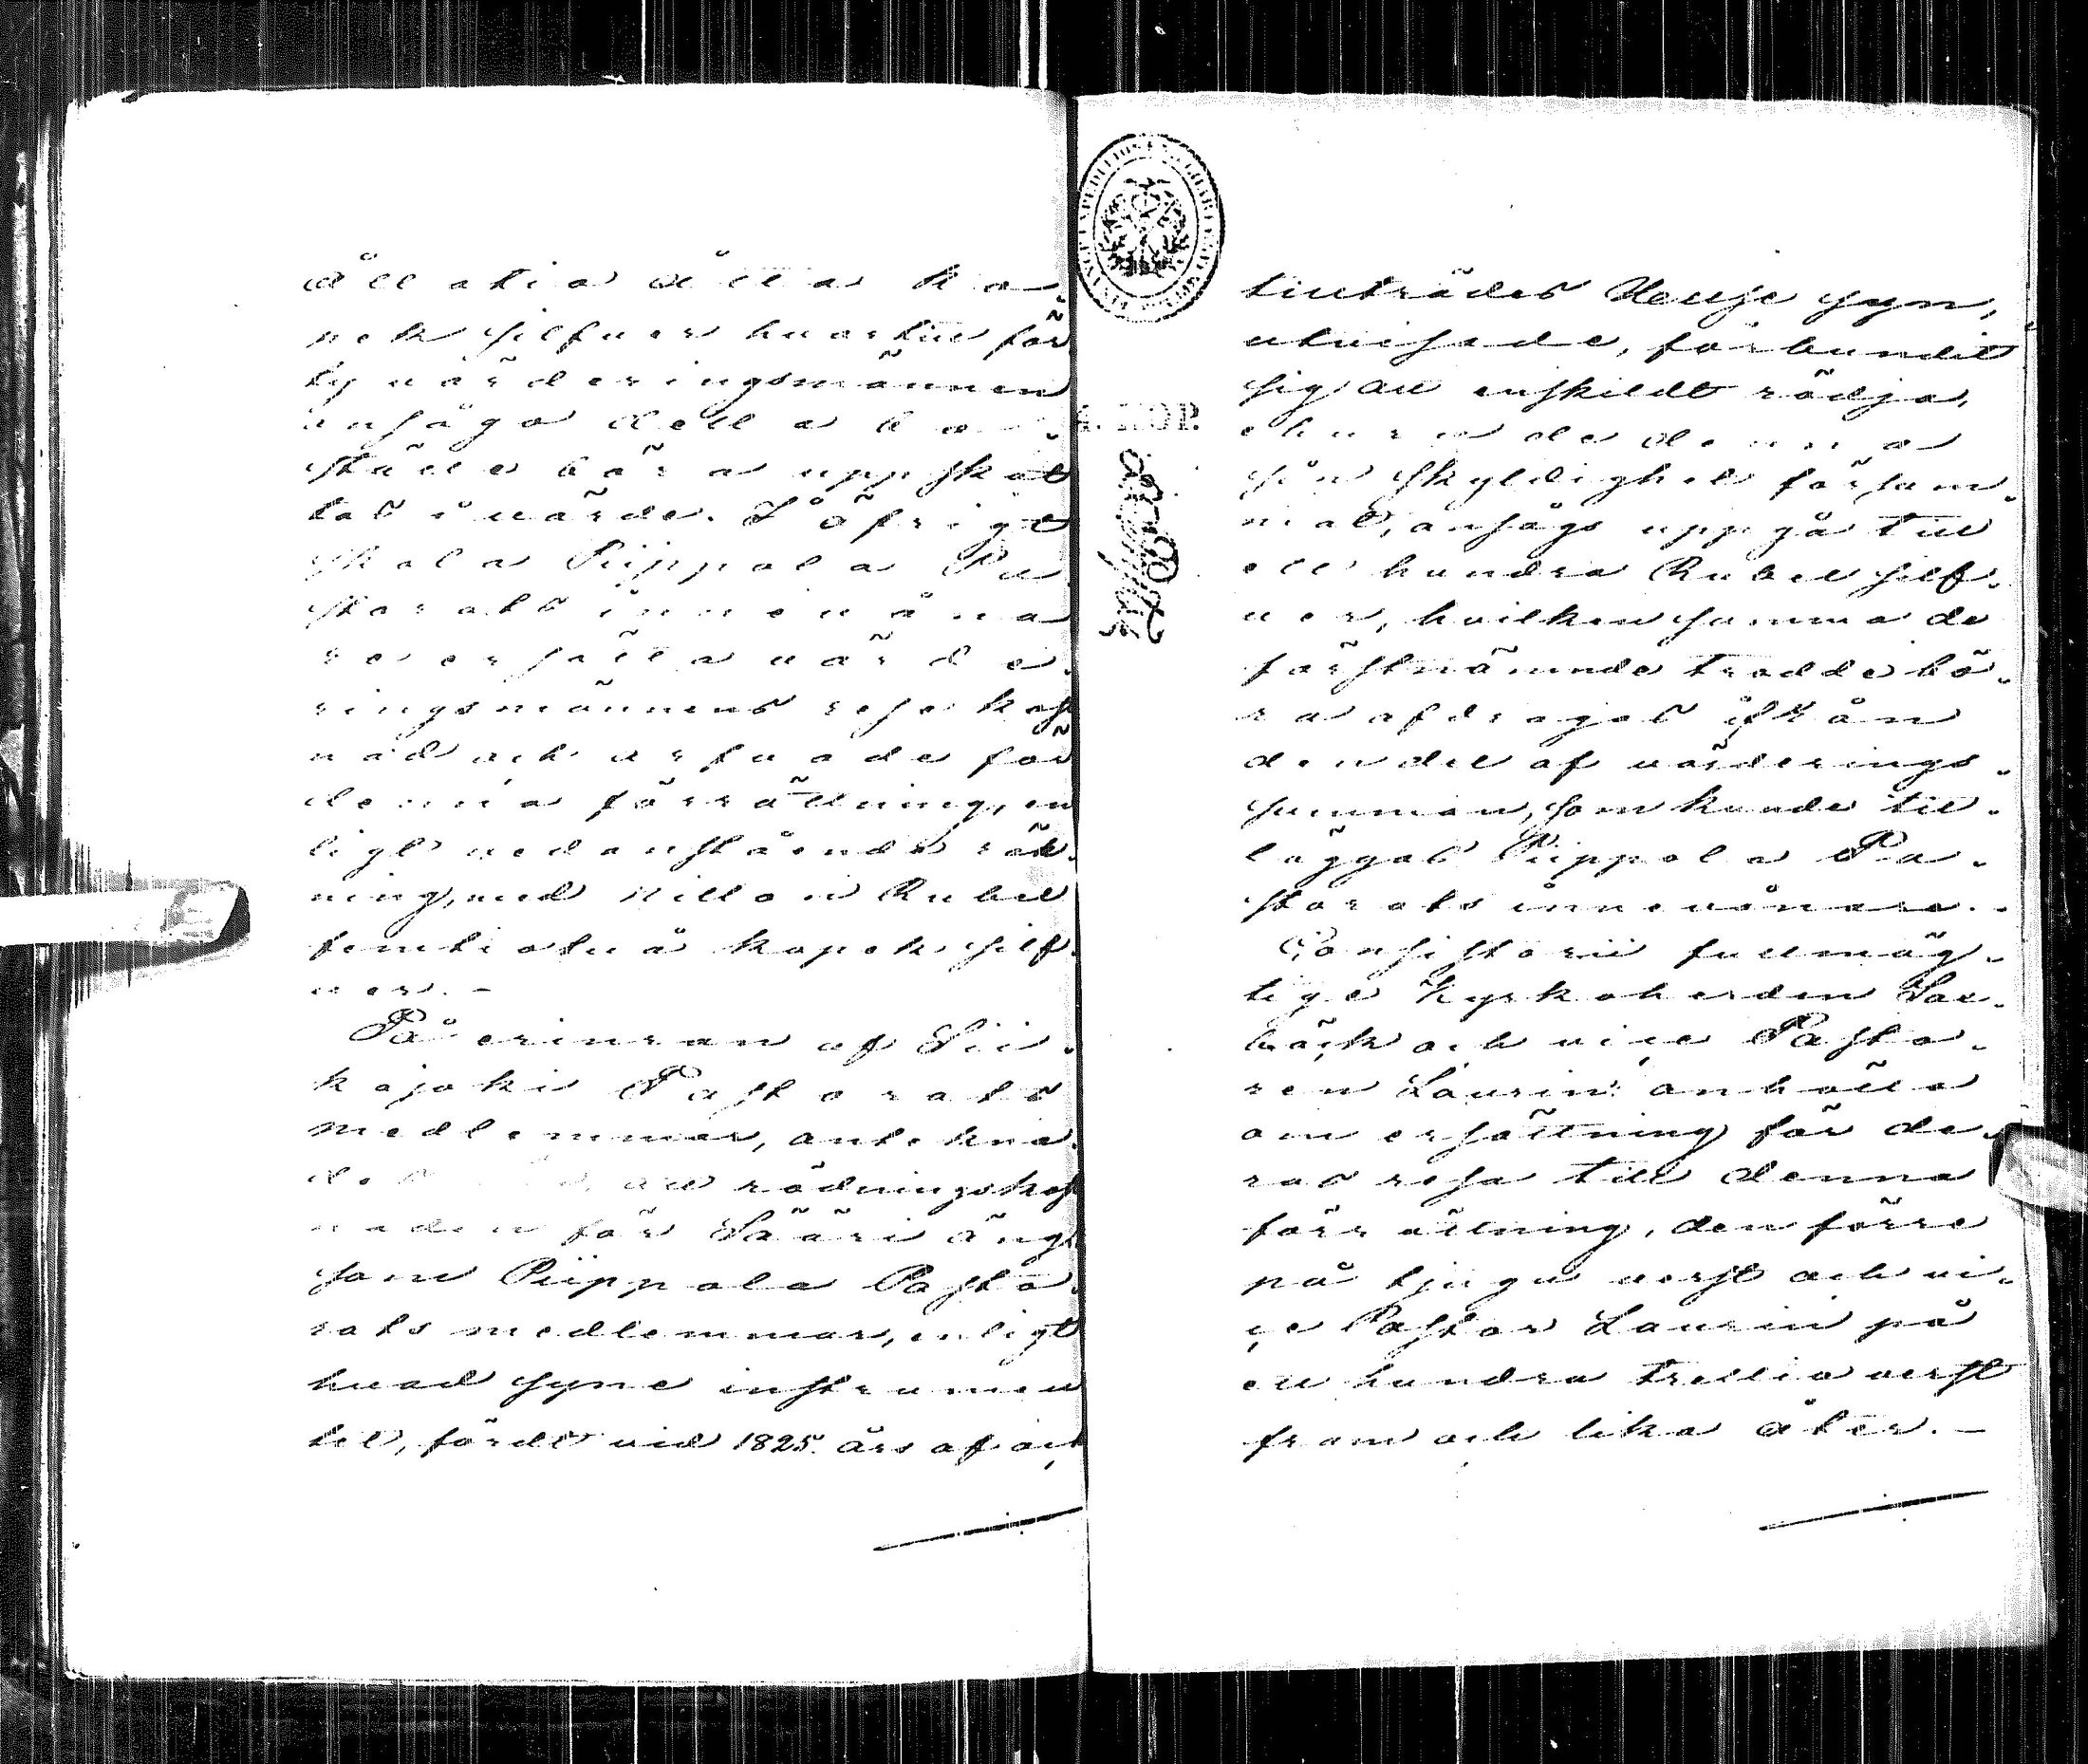 åttatio åtta ko-
pek silfver hvartill för
ty värderingsmännen
ansågo detta bo-
ställe böra uppskat
tas i värde. I öfrigt
skola Piippola Pa
storats innevåna
re ersätta värde-
ringsmännens resekost
nad och arfvode för
denna förrättning, en
ligt nedanstående räk-
ning, med Rubel
femtiotvå kopek silf-
ver. –
På erinran af Sii-
kajoki Pastorats
medlemmar, anteckna-
des att rödningskost
naden för Sääri äng,
som Piippola Pasto-
rats medlemmar, enligt
hvad syne instrumen
tet, fördt vid 1825. års af och
tillträdes Husesyn,
utvisade, förbundit
sig att enskildt rödja,
ehuru de denna
sin skyldighet försum-
mat, ansågs uppgå till
ett hundra Rubel silf-
ver, hvilken summa de
förstnämnde trodde bö-
ra afdragas ifrån
den del af värderings-
summan, som kunde till-
läggas Piippola Pa-
storats innevånare. -
Consistorii fullmäg-
tige Kyrkoherden
och vice Pasto-
ren Laurin anhöllo
om ersättning för de-
ras resa till denna
förrättning, den förre
på tjugu verst och vi-
ce Pastor Laurin på
ett hundra trettio verst
fram och lika åter. –